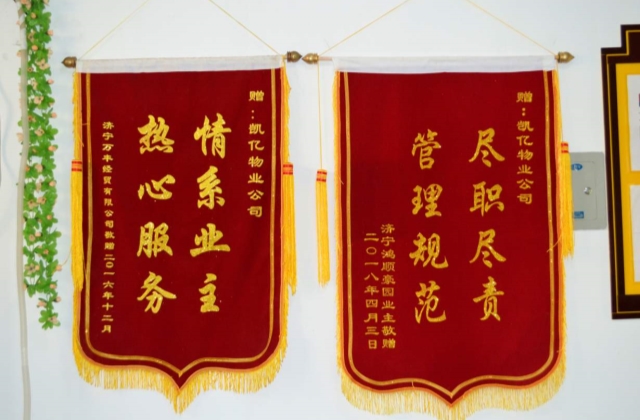 赠：凯亿物业公司
情系业主
热心服务
济宁万丰经贸有限公司敬赠二〇一六年十二月
赠：凯亿物业公司
尽职尽责
管理规范
济宁鸿顺豪园业主敬赠
二〇一八年四月三日